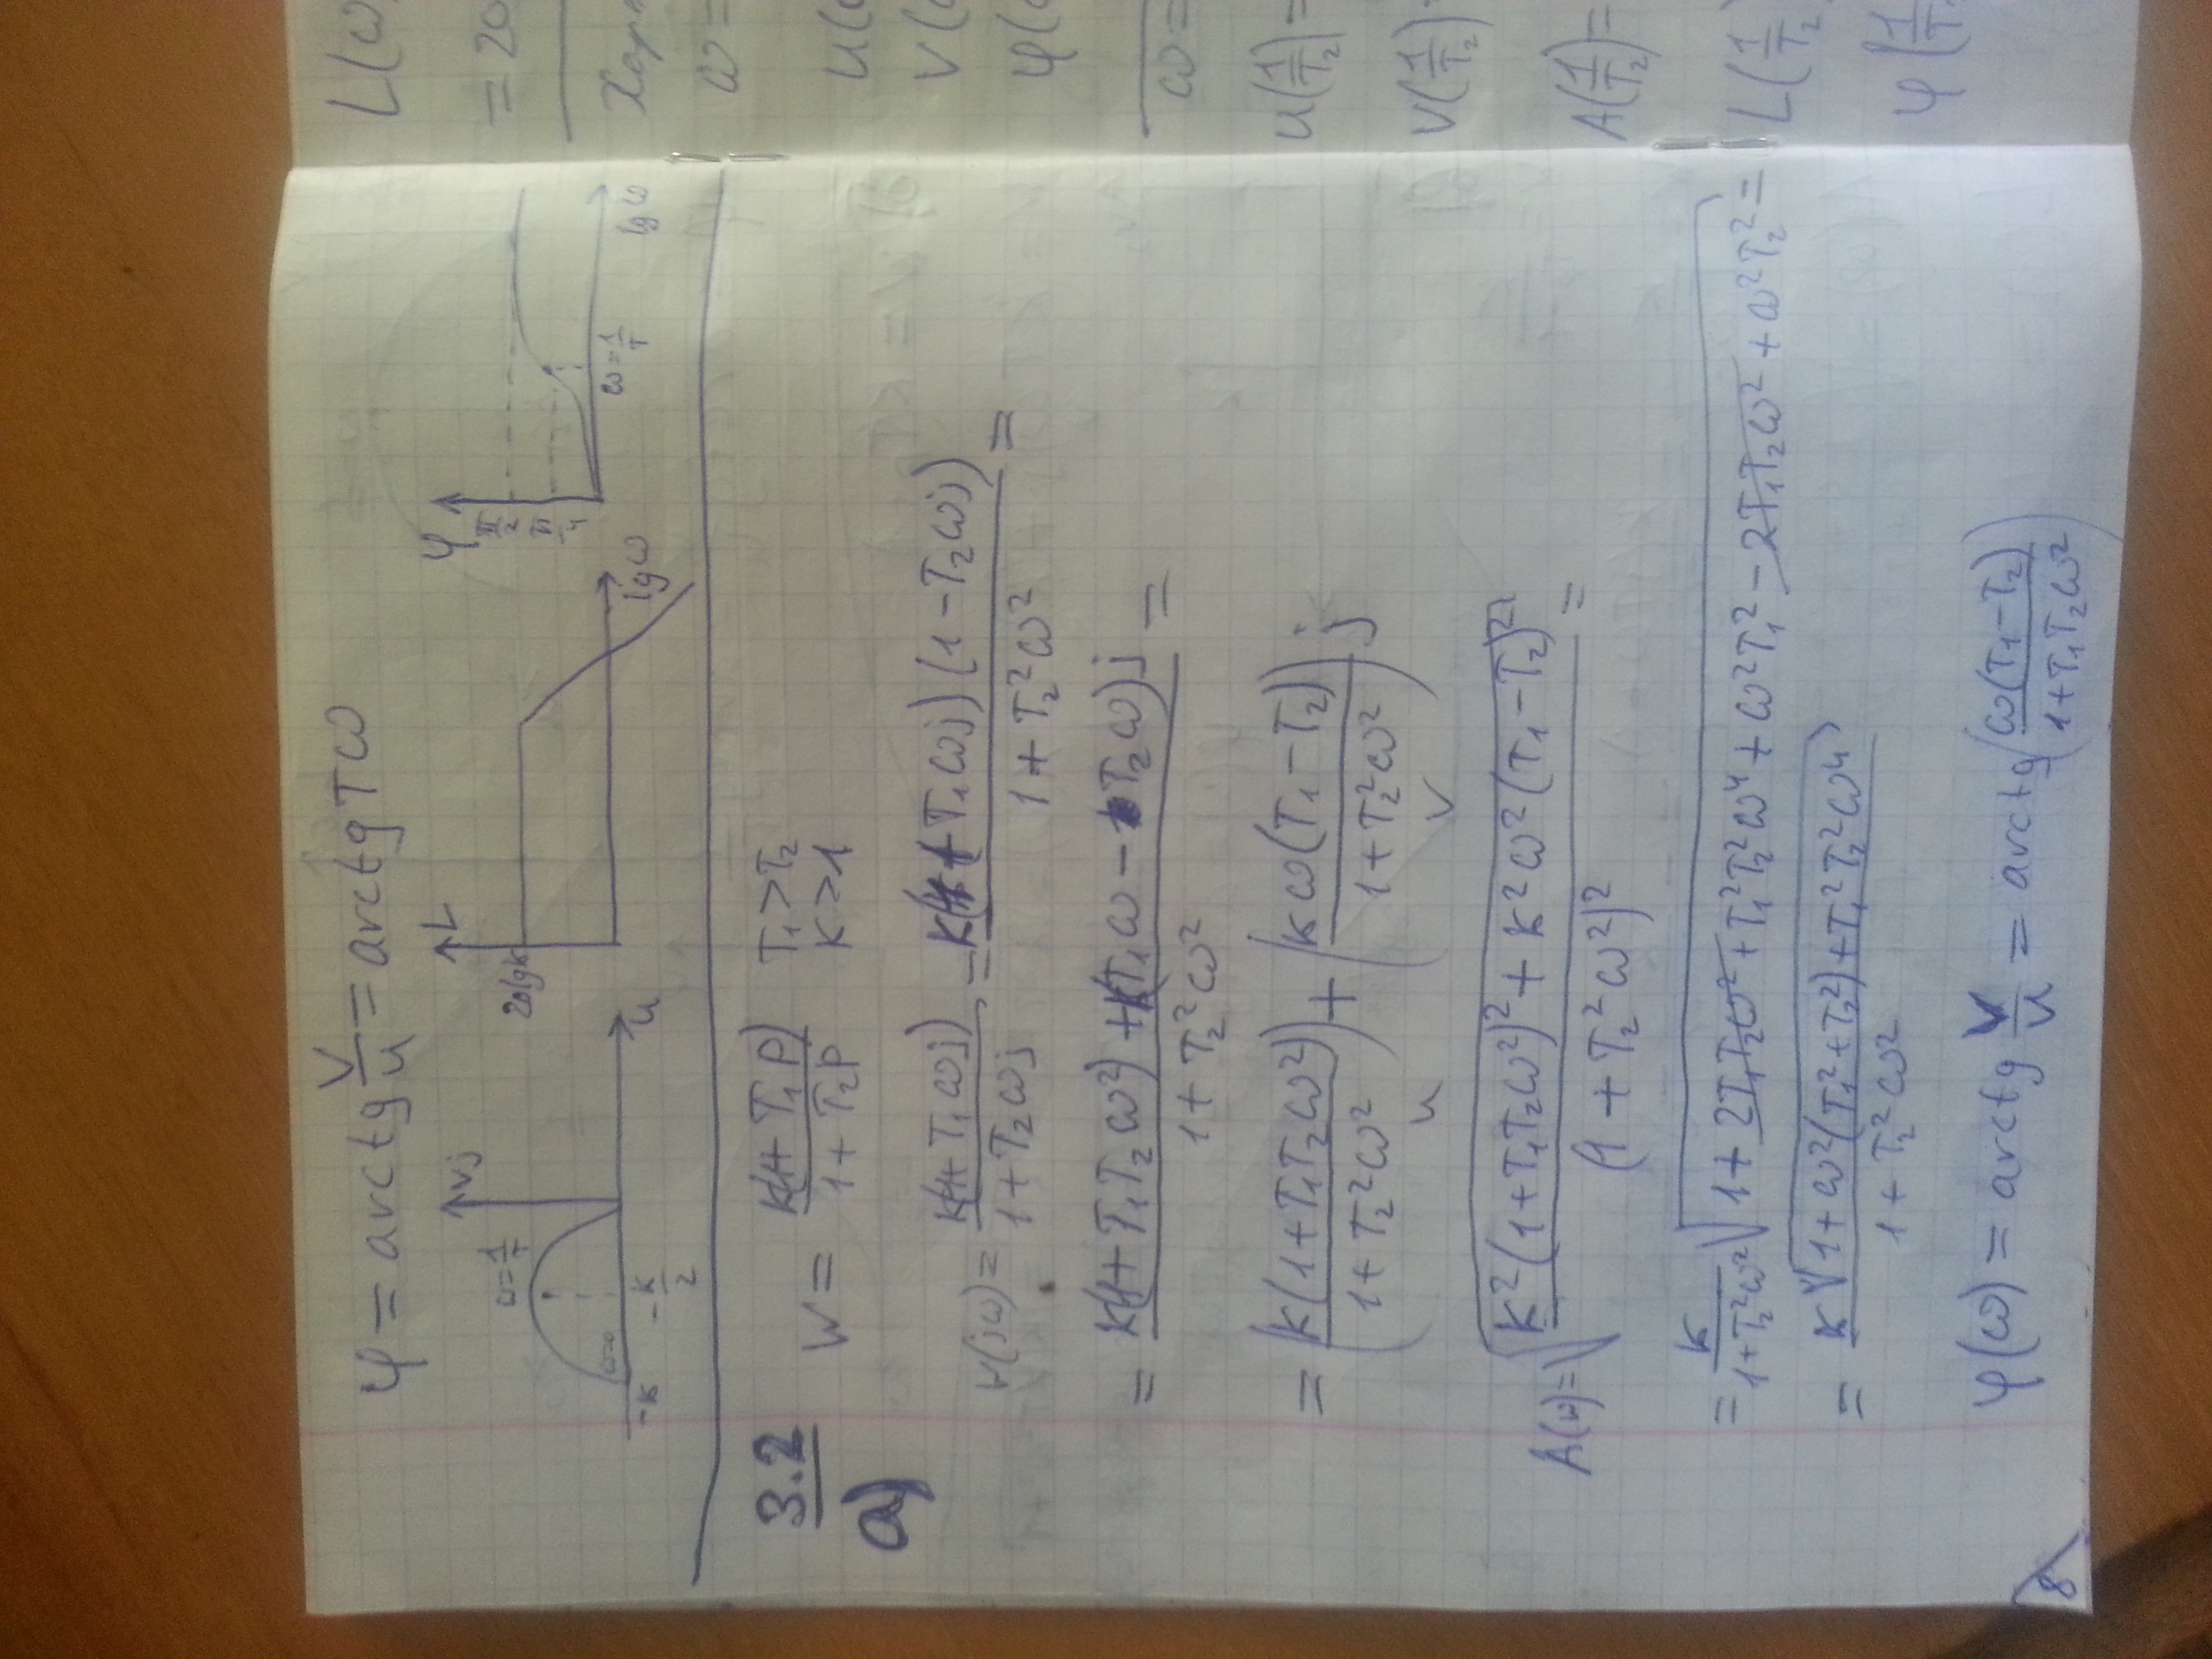 φ = arctg V/u = arctg Tω
Vj
ω=1/T
ω=0
-K
-K/2
u
L
20lgK
lgω
φ
π/2
π/4
ω=1/T
lgω
3.2
a)
W = K(1+T₁p)/(1+T₂p)
T₁>T₂
K>1
W(jω) = K(1+T₁ωj)/(1+T₂ωj) = K(1+T₁ωj)(1-T₂ωj)/(1+T₂²ω²) =
= (K(1+T₁T₂ω²)+K(T₁ω-T₂ω)j)/(1+T₂²ω²) =
= (K(1+T₁T₂ω²)/(1+T₂²ω²)) + (Kω(T₁-T₂)/(1+T₂²ω²)) j
u
V
A(ω)=√((K²(1+T₁T₂ω²)²+K²ω²(T₁-T₂)²)/(1+T₂²ω²)²) =
= K/(1+T₂²ω²) √(1+2T₁T₂ω²+T₁²T₂²ω⁴+ω²T₁²-2T₁T₂ω²+ω²T₂²) =
= K√(1+ω²(T₁²+T₂²)+T₁²T₂²ω⁴)/(1+T₂²ω²)
φ(ω) = arctg V/u = arctg(ω(T₁-T₂)/(1+T₁T₂ω²))
8
L(ω
= 20
Хар
ω =
u(
V(
φ(
ω =
u(1/T₂) =
V(1/T₂)
A(1/T₂) =
L(1/T₂
φ(1/T